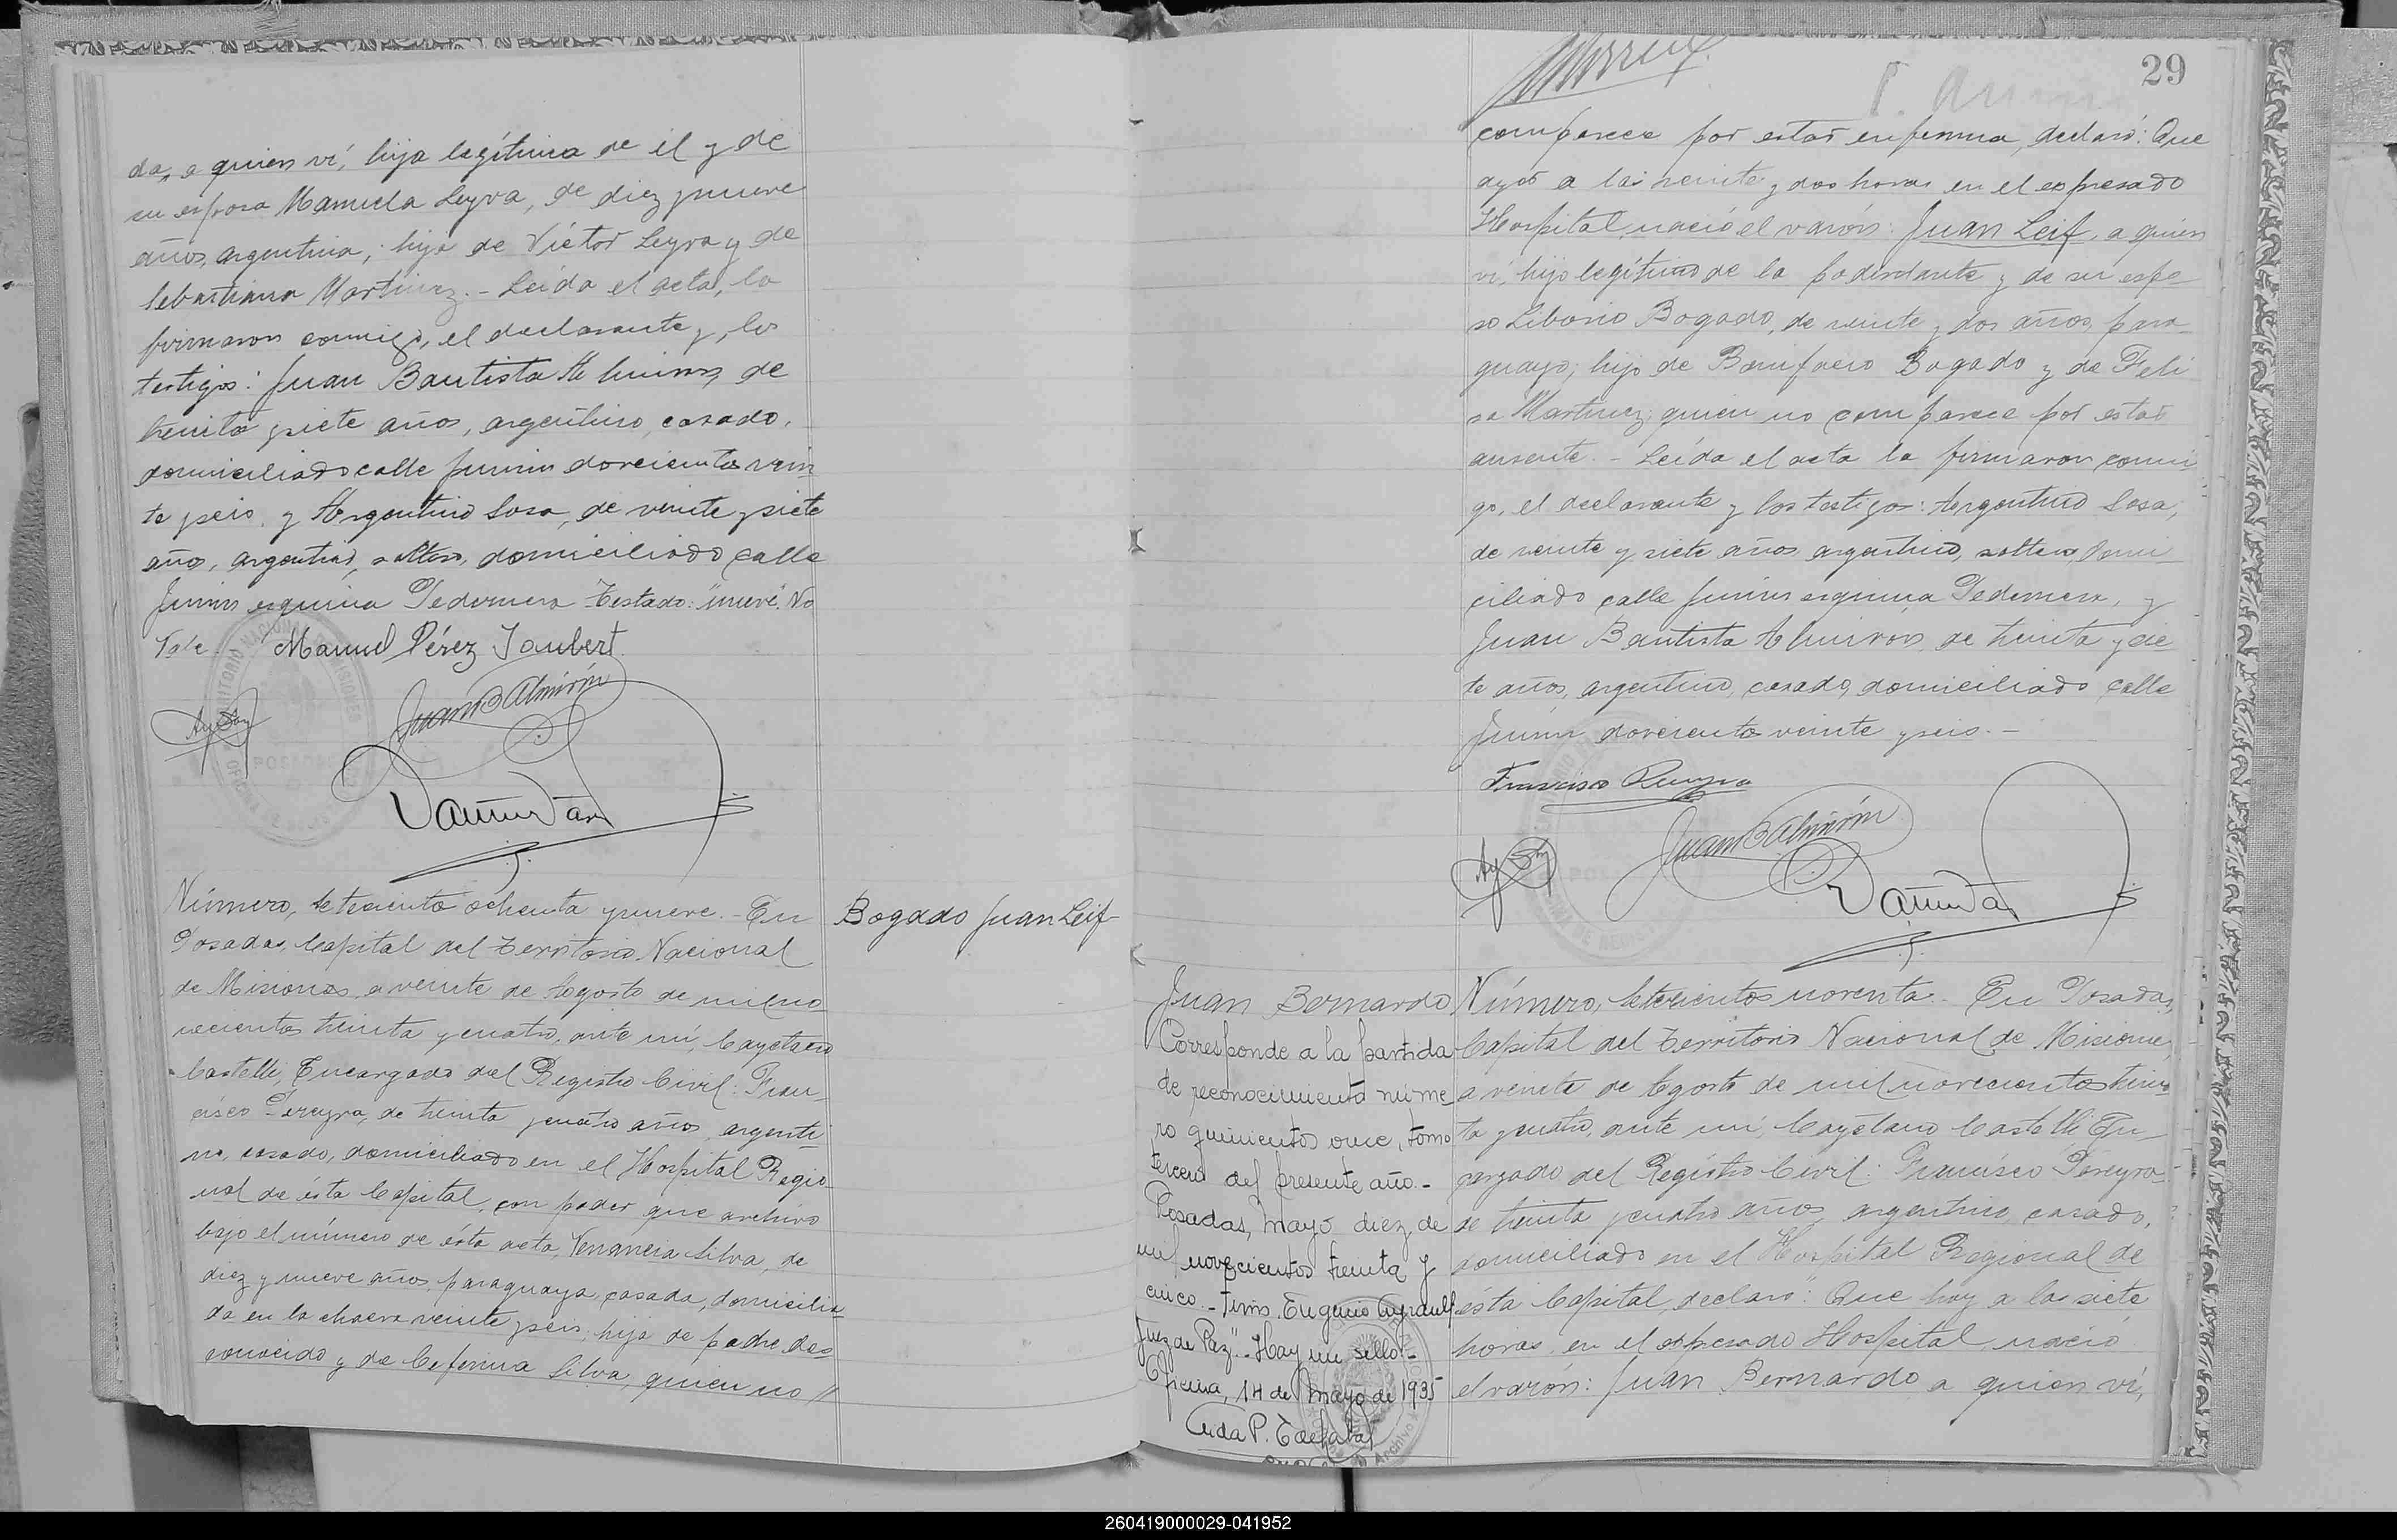 da, a quien ví, hija legítima de él y de
su esposa Manuela Leyva, de diez y nueve
años, argentina, hija de Víctor Leyva y de
Sebastiana Martinez.- Leída el acta, la
firmaron conmigo, el declarante y, los
testigos: Juan Bautista Almiron, de
treinta y siete años, argentino, casado,
domiciliado calle Junin doscientos vein
te y seis, y Argentino Sosa, de veinte y siete
años, argentino, soltero, domiciliado calle
Junin esquina Pedernera Testado: "nueve". No
Vale.
Manuel Pérez Joubert
Juan B Almirón
Número, setecientos ochenta y nueve.- En
Posadas, Capital del Territorio Nacional
de Misiones, a veinte de Agosto de mil no
vecientos treinta y cuatro, ante mí, Cayetano
Castelli, Encargado del Registro Civil: Fran-
cisco Pereyra, de treinta y cuatro años, argenti
no, casado, domiciliado en el Hospital Regio-
nal de ésta Capital, con poder que archivo
bajo el número de ésta acta, Venancia Silva, de
diez y nueve años, paraguaya, casada, domicilia-
da en la chacra veinte y seis, hija de padre des
conocido y de Ceferina Silva, quien no //
Bogado Juan Leif
29
comparece por estar enferma, declaró: Que
ayer a las veinte y dos horas en el expresado
Hospital, nació el varón: Juan Leif, a quien
ví, hijo legítimo de la poderdante y de su espo-
so Liborio Bogado, de veinte y dos años, para-
guayo, hijo de Bonifacio Bogado y de Feli
sa Martinez, quien no comparece por estar
ausente.- Leída el acta la firmaron conmi
go, el declarante y los testigos: Argentino Sosa,
de veinte y siete años, argentino, soltero, domi-
ciliado calle Junin esquina Pedernera, y
Juan Bautista Almiron, de treinta y sie
te años, argentino, casado, domiciliado calle
Junin doscientos veinte y seis.-
Francisco Pereyra
Juan B Almirón
Juan Bernardo
Corresponde a la partida
de reconocimiento núme
ro quinientos once, tomo
tercero del presente año.-
Posadas, mayo diez de
mil novecientos treinta y
cinco.- Firm. Eugenio
Juez de Paz".- Hay un sello.-
Oficina, 14 de Mayo de 1935
Número, setecientos noventa. En Posadas,
Capital del Territorio Nacional de Misiones,
a veinte de Agosto de mil novecientos trein-
ta y cuatro, ante mí, Cayetano Castelli, En-
cargado del Registro Civil: Francisco Pereyra
de treinta y cuatro años, argentino, casado,
domiciliado en el Hospital Regional de
ésta Capital, declaró: Que hoy a las siete
horas, en el expresado Hospital, nació
el varón: Juan Bernardo a quien ví,
260419000029-041952